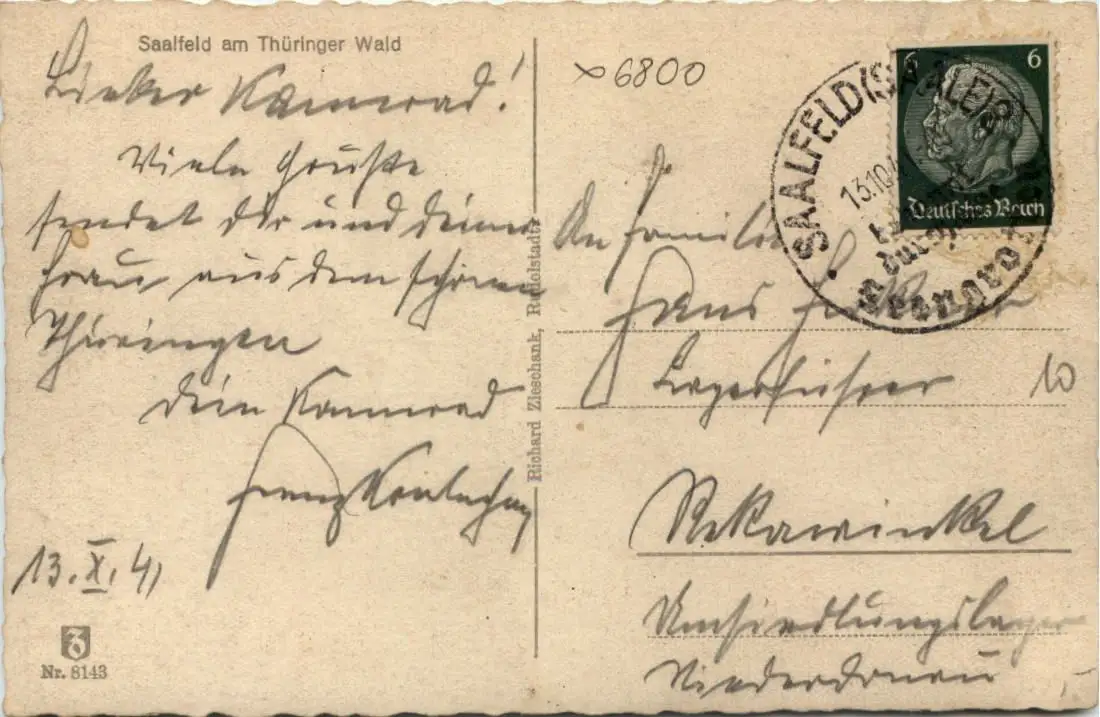 Saalfeld am Thüringer Wald
Lieber Kamerad!
Viele Grüße
sendet dir und deiner
Frau aus dem schönen
Thüringen
Dein Kamerad
Franz
13. X. 41
Nr. 8143
Richard Zieschank, Rudolstadt
6800
6 6
Deutsches Reich
SAALFELD (SAALE)
13.10.4
An Familie
Hans
Lagerführer
10
Rekawinkel
Umsiedlungslager
Niederdonau